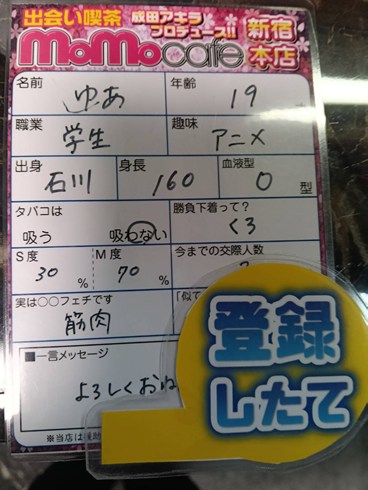 出会い喫茶 成田アキラ プロデュース!!
MoMocafe 新宿本店
名前 ゆあ 年齢 19
職業 学生 趣味 アニメ
出身 石川 身長 160 血液型 O 型
タバコは 吸う 吸わない 勝負下着って? くろ
S度 30 % M度 70 % 今までの交際人数
実は○○フェチです 筋肉 「似て
■一言メッセージ
よろしくおね
※当店は
登録
したて